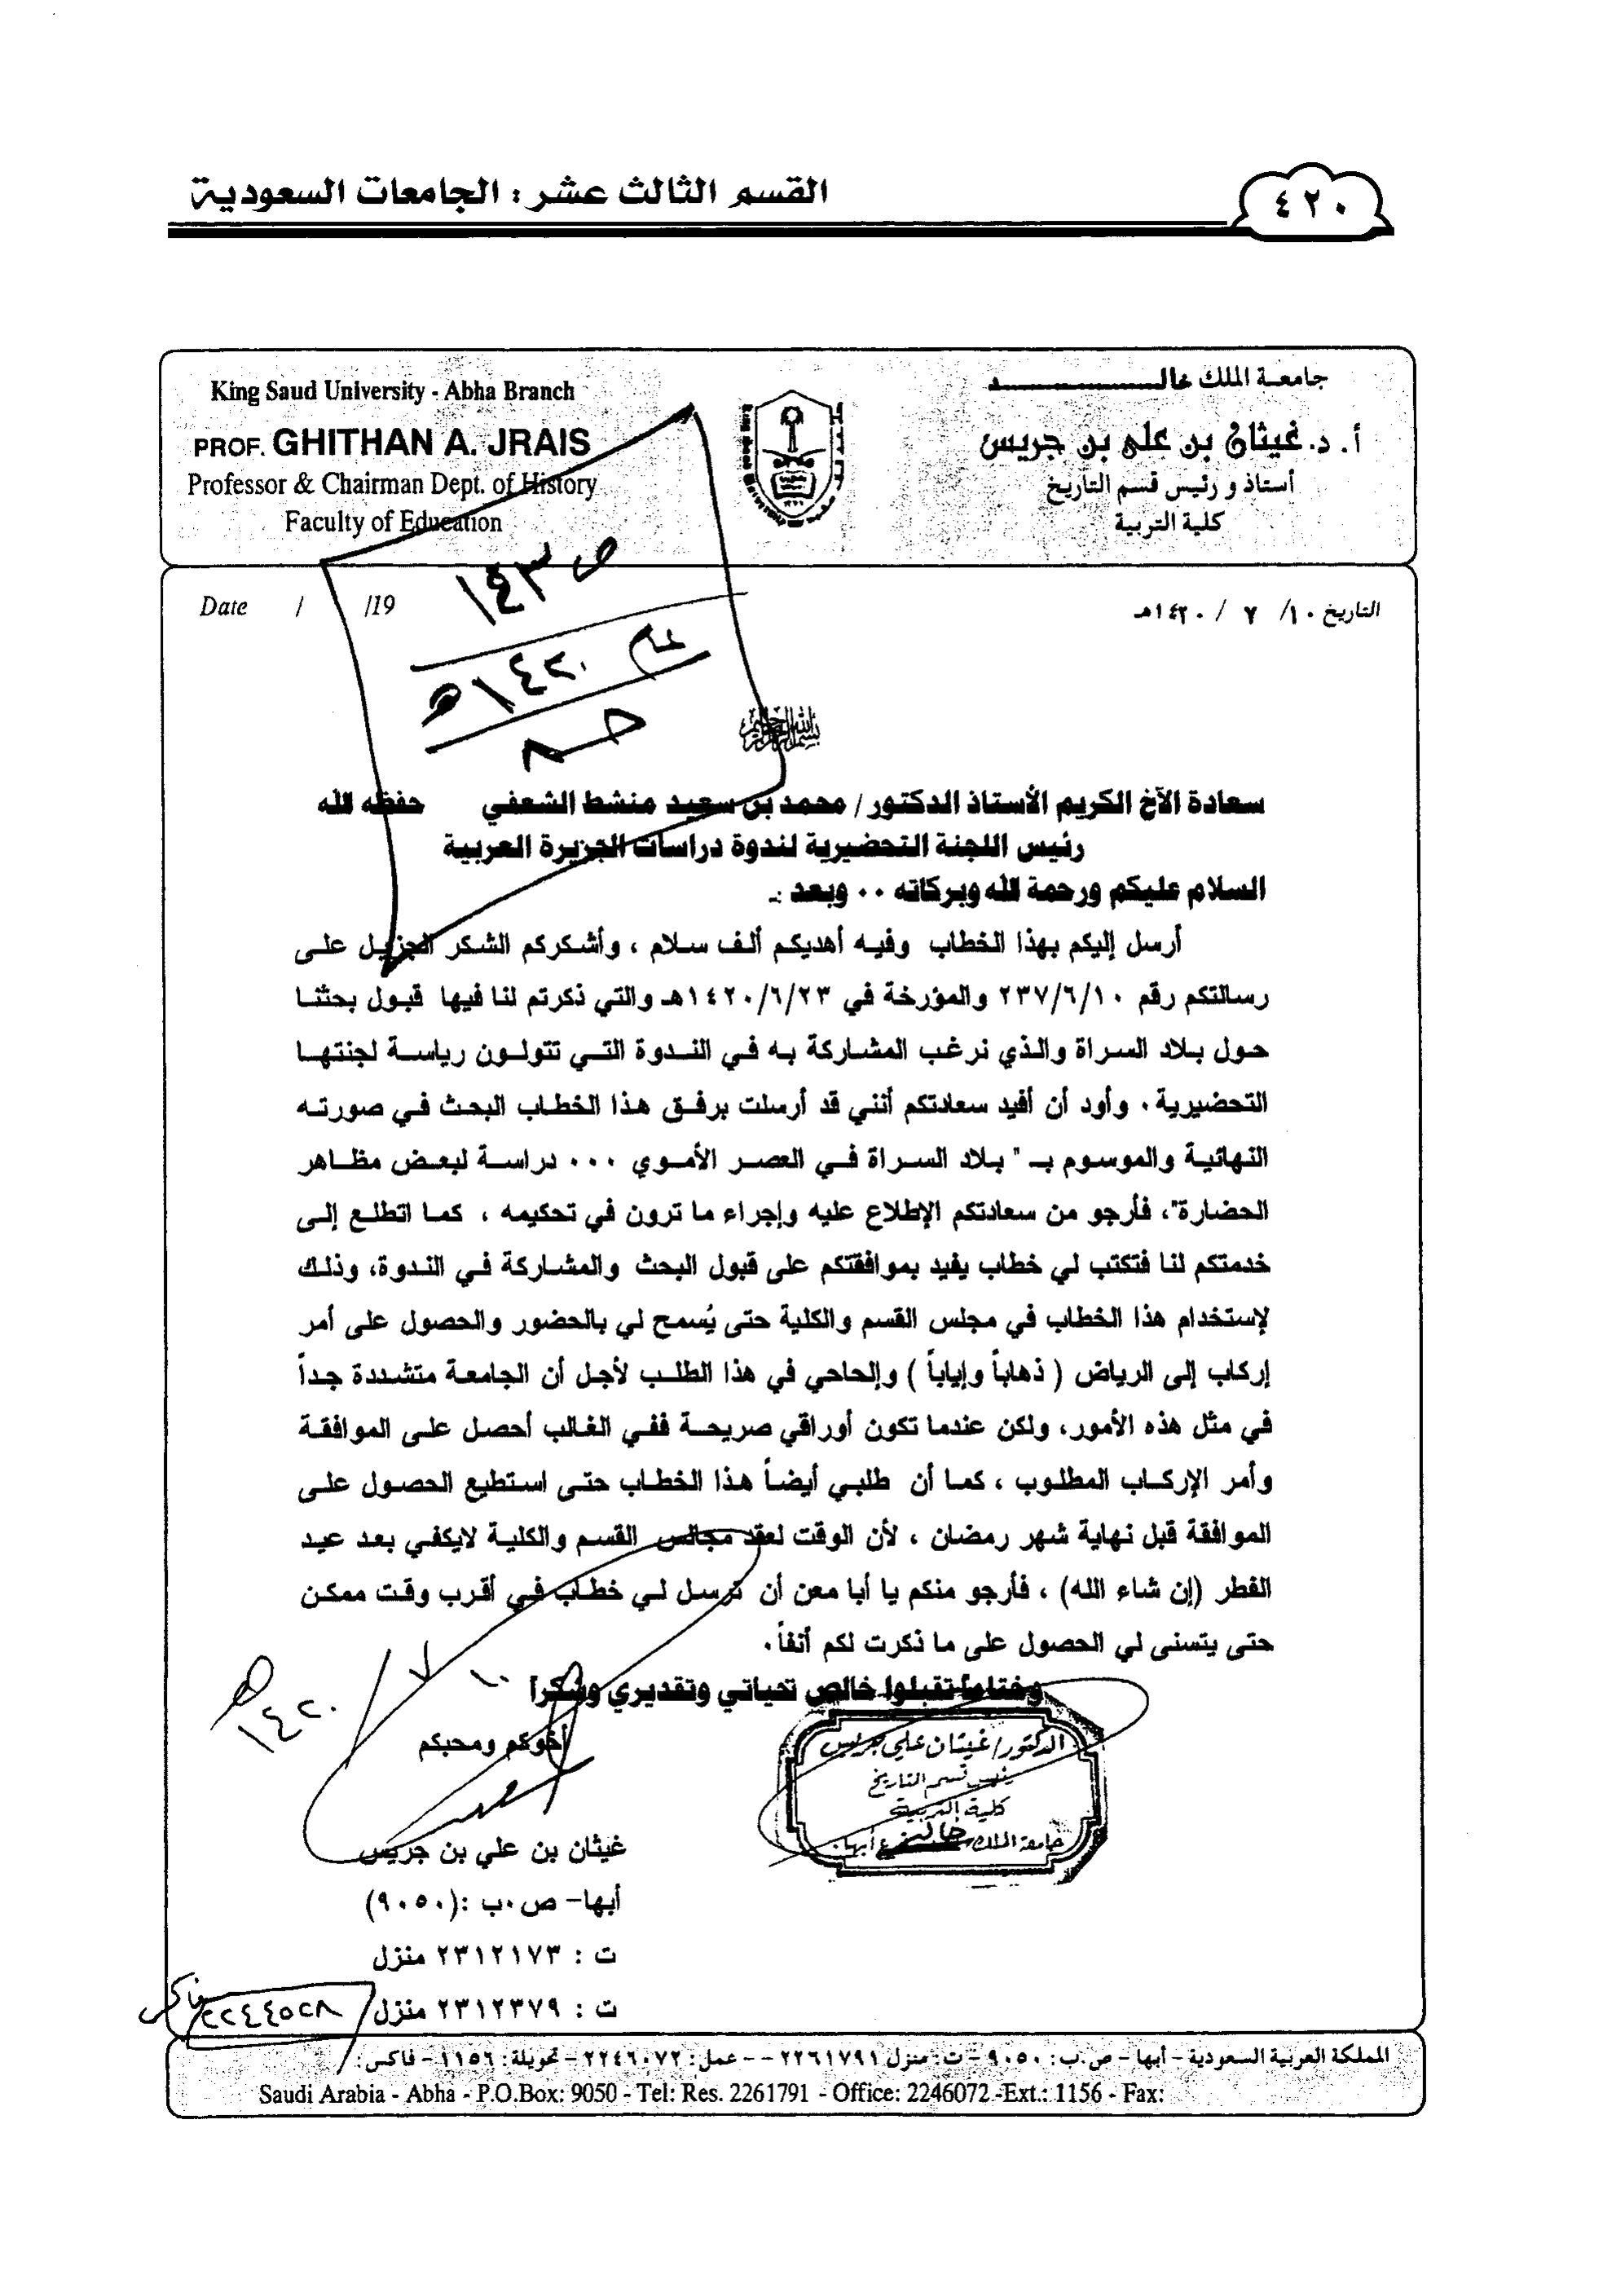 القسم الثالث عشر: الجامعات السعودية
٤٢٠
جامعة الملك خالد
أ. د. غيثان بن على بن جريس
أستاذ و رئيس قسم التاريخ
كلية التربية
King Saud University - Abha Branch
PROF. GHITHAN A. JRAIS
Professor & Chairman Dept. of History
Faculty of Education
التاريخ ١٠/ ٧ / ١٤٢٠هـ
Date / /19
ص ١٤٣
عام
١٤٢٠هـ
بسم الله الرحمن الرحيم
سعادة الآخ الكريم الأستاذ الدكتور/ محمد بن سعيد منشط الشعفي حفظه الله
رئيس اللجنة التحضيرية لندوة دراسات الجزيرة العربية
السلام عليكم ورحمة الله وبركاته ٠٠ وبعد :ـ
أرسل إليكم بهذا الخطاب وفيه أهديكم ألف سلام ، وأشكركم الشكر الجزيل على
رسالتكم رقم ٢٣٧/٦/١٠ والمؤرخة في ١٤٢٠/٦/٢٣هـ والتي ذكرتم لنا فيها قبول بحثنا
حول بلاد السراة والذي نرغب المشاركة به في الندوة التي تتولون رياسة لجنتها
التحضيرية ، وأود أن أفيد سعادتكم أنني قد أرسلت برفق هذا الخطاب البحث في صورته
النهائية والموسوم بـ " بلاد السراة في العصر الأموي ٠٠٠ دراسة لبعض مظاهر
الحضارة"، فأرجو من سعادتكم الإطلاع عليه وإجراء ما ترون في تحكيمه ، كما اتطلع إلى
خدمتكم لنا فتكتب لي خطاب يفيد بموافقتكم على قبول البحث والمشاركة في الندوة، وذلك
لإستخدام هذا الخطاب في مجلس القسم والكلية حتى يُسمح لي بالحضور والحصول على أمر
إركاب إلى الرياض ( ذهاباً وإياباً ) وإلحاحي في هذا الطلب لأجل أن الجامعة متشددة جداً
في مثل هذه الأمور، ولكن عندما تكون أوراقي صريحة ففي الغالب أحصل على الموافقة
وأمر الإركاب المطلوب ، كما أن طلبي أيضاً هذا الخطاب حتى استطيع الحصول على
الموافقة قبل نهاية شهر رمضان ، لأن الوقت لعقد مجالس القسم والكلية لايكفي بعد عيد
الفطر (إن شاء الله) ، فأرجو منكم يا أبا معن أن ترسل لي خطاب في أقرب وقت ممكن
حتى يتسنى لي الحصول على ما ذكرت لكم أنفاً٠
وختاماً تقبلوا خالص تحياتي وتقديري وشكراً
أخوكم ومحبكم
١٠ / ٧ / ١٤٢٠هـ
الدكتور/ غيثان علي جريس
رئيس قسم التاريخ
كلية التربية
جامعة الملك خالد أبها
غيثان بن علي بن جريس
أبها- ص٠ب :(٩٠٥٠)
ت : ٢٣١٢١٧٣ منزل
ت : ٢٣١٢٣٧٩ منزل
فاكس ٢٢٤٤٥٢٨
المملكة العربية السعودية - أبها - ص.ب: ٩٠٥٠ - ت: منزل ٢٢٦١٧٩١ - - عمل: ٢٢٤٦٠٧٢ - تحويلة: ١١٥٦ - فاكس:
Saudi Arabia - Abha - P.O.Box: 9050 - Tel: Res. 2261791 - Office: 2246072.-Ext.: 1156 - Fax: